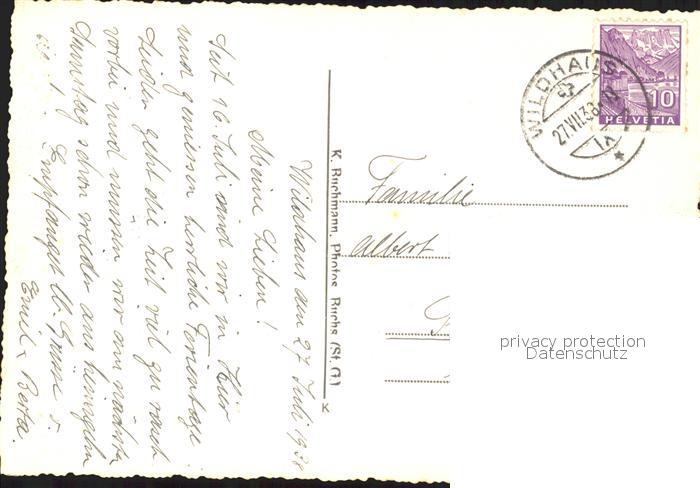 Wildhaus den 27 Juli 1938
Meine Lieben!
Seit 16. Juli sind wir in hier
und geniessen herrliche Ferientage
Leider geht die Zeit viel zu rasch
vorbei und müssen wir am nächsten
Samstag schon wieder ans heimgehn
Empfanget lb. Grüsse v.
Emil & Berta.
K. Buchmann, Photos, Buchs (St. G.)
x
WILDHAUS
27.VII.38
IX
10
HELVETIA
Familie
Albert
privacy protection
Datenschutz